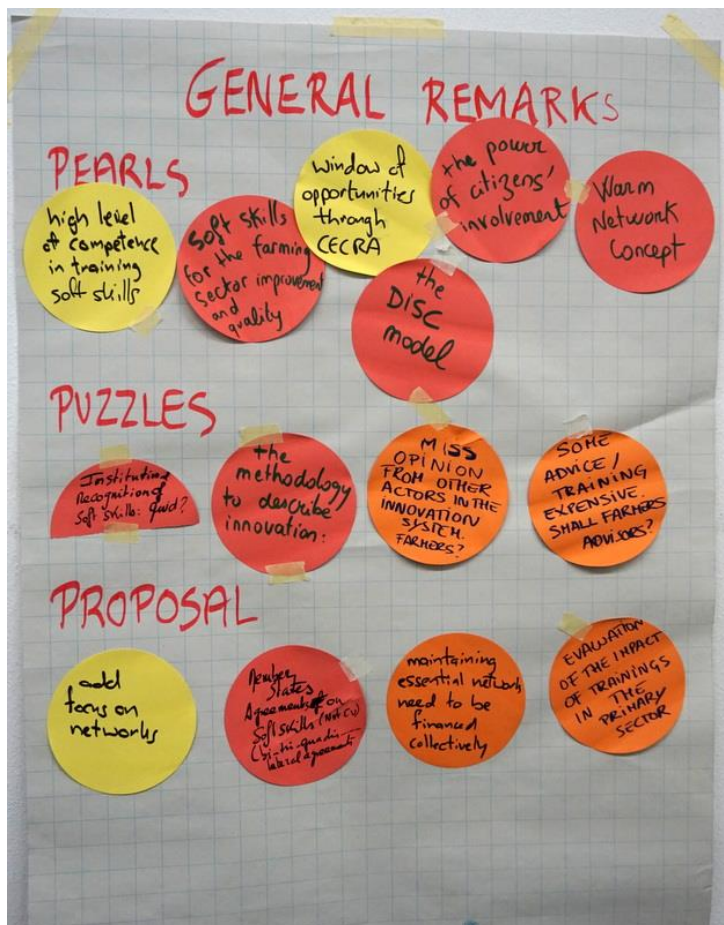 GENERAL REMARKS
PEARLS
high level
of competence
in training
soft skills
Soft skills
for the farming
sector improvement
and
quality
Window of
opportunities
through
CECRA
the
DISC
model
the power
of citizens'
involvement
Warm
Network
Concept
PUZZLES
Institutional
Recognition of
Soft Skills: quid?
the
methodology
to describe
innovation:
MISS
OPINION
FROM OTHER
ACTORS IN THE
INNOVATION
SYSTEM.
FARMERS?
SOME
ADVICE/
TRAINING
EXPENSIVE.
SMALL FARMERS
ADVISORS?
PROPOSAL
add
focus on
networks
Member
States
Agreements on
Soft skills (Not
(bi-tri-quadri-
lateral agreements
maintaining
essential network
need to be
financed
collectively
EVALUATION
OF THE IMPACT
OF TRAININGS
IN THE
PRIMARY
SECTOR